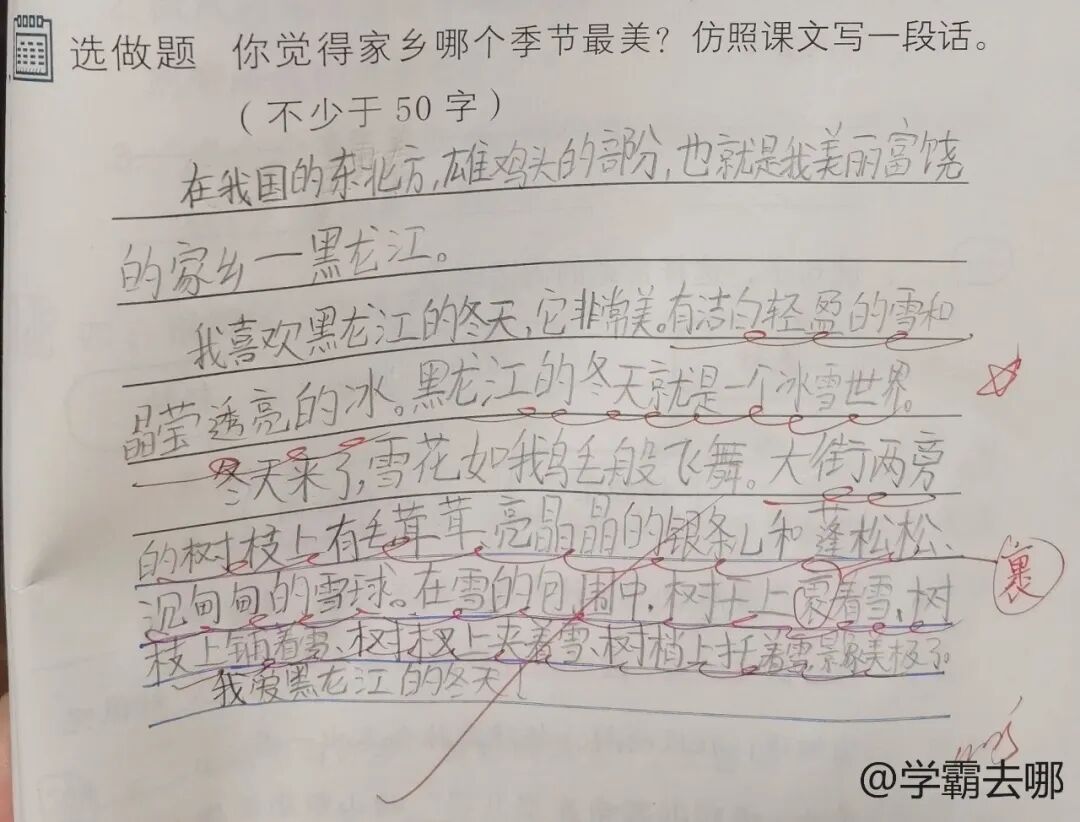 选做题 你觉得家乡哪个季节最美？仿照课文写一段话。
（不少于50字）
在我国的东北方,雄鸡头的部份,也就是我美丽富饶
的家乡一黑龙江。
我喜欢黑龙江的冬天,它非常美。有洁白轻盈的雪和
晶莹透亮的冰。黑龙江的冬天就是一个冰雪世界。
冬天来了,雪花如鹅毛般飞舞。大街两旁
的树枝上有毛茸茸、亮晶晶的银条儿和蓬松松、
沉甸甸的雪球。在雪的包围中,树干上裹着雪、树
裹
枝上铺着雪、树杈上夹着雪、树梢上托着雪,景象美极了。
我爱黑龙江的冬天！
@学霸去哪